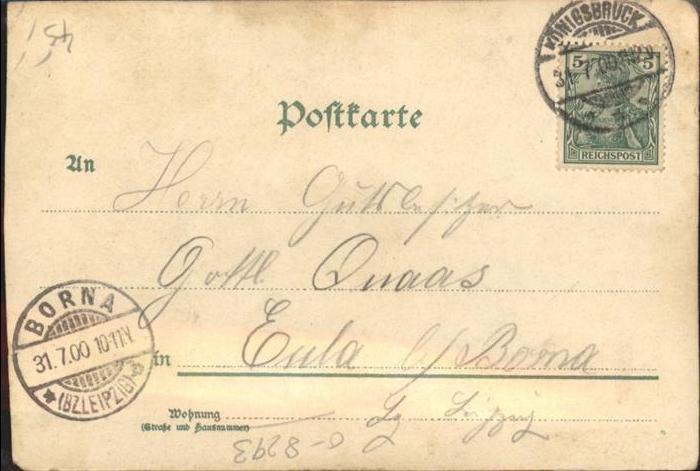 KÖNIGSBRÜCK
31.7.00
5 5
REICHSPOST
Postkarte
An
Herrn Gutsbesitzer
Gottl. Quaas
in Eula b/Borna
BORNA
31.7.00 10-11V.
* (BZ.LEIPZIG) *
Wohnung
(Straße und Hausnummer)
Bz Leipzig
0-8293